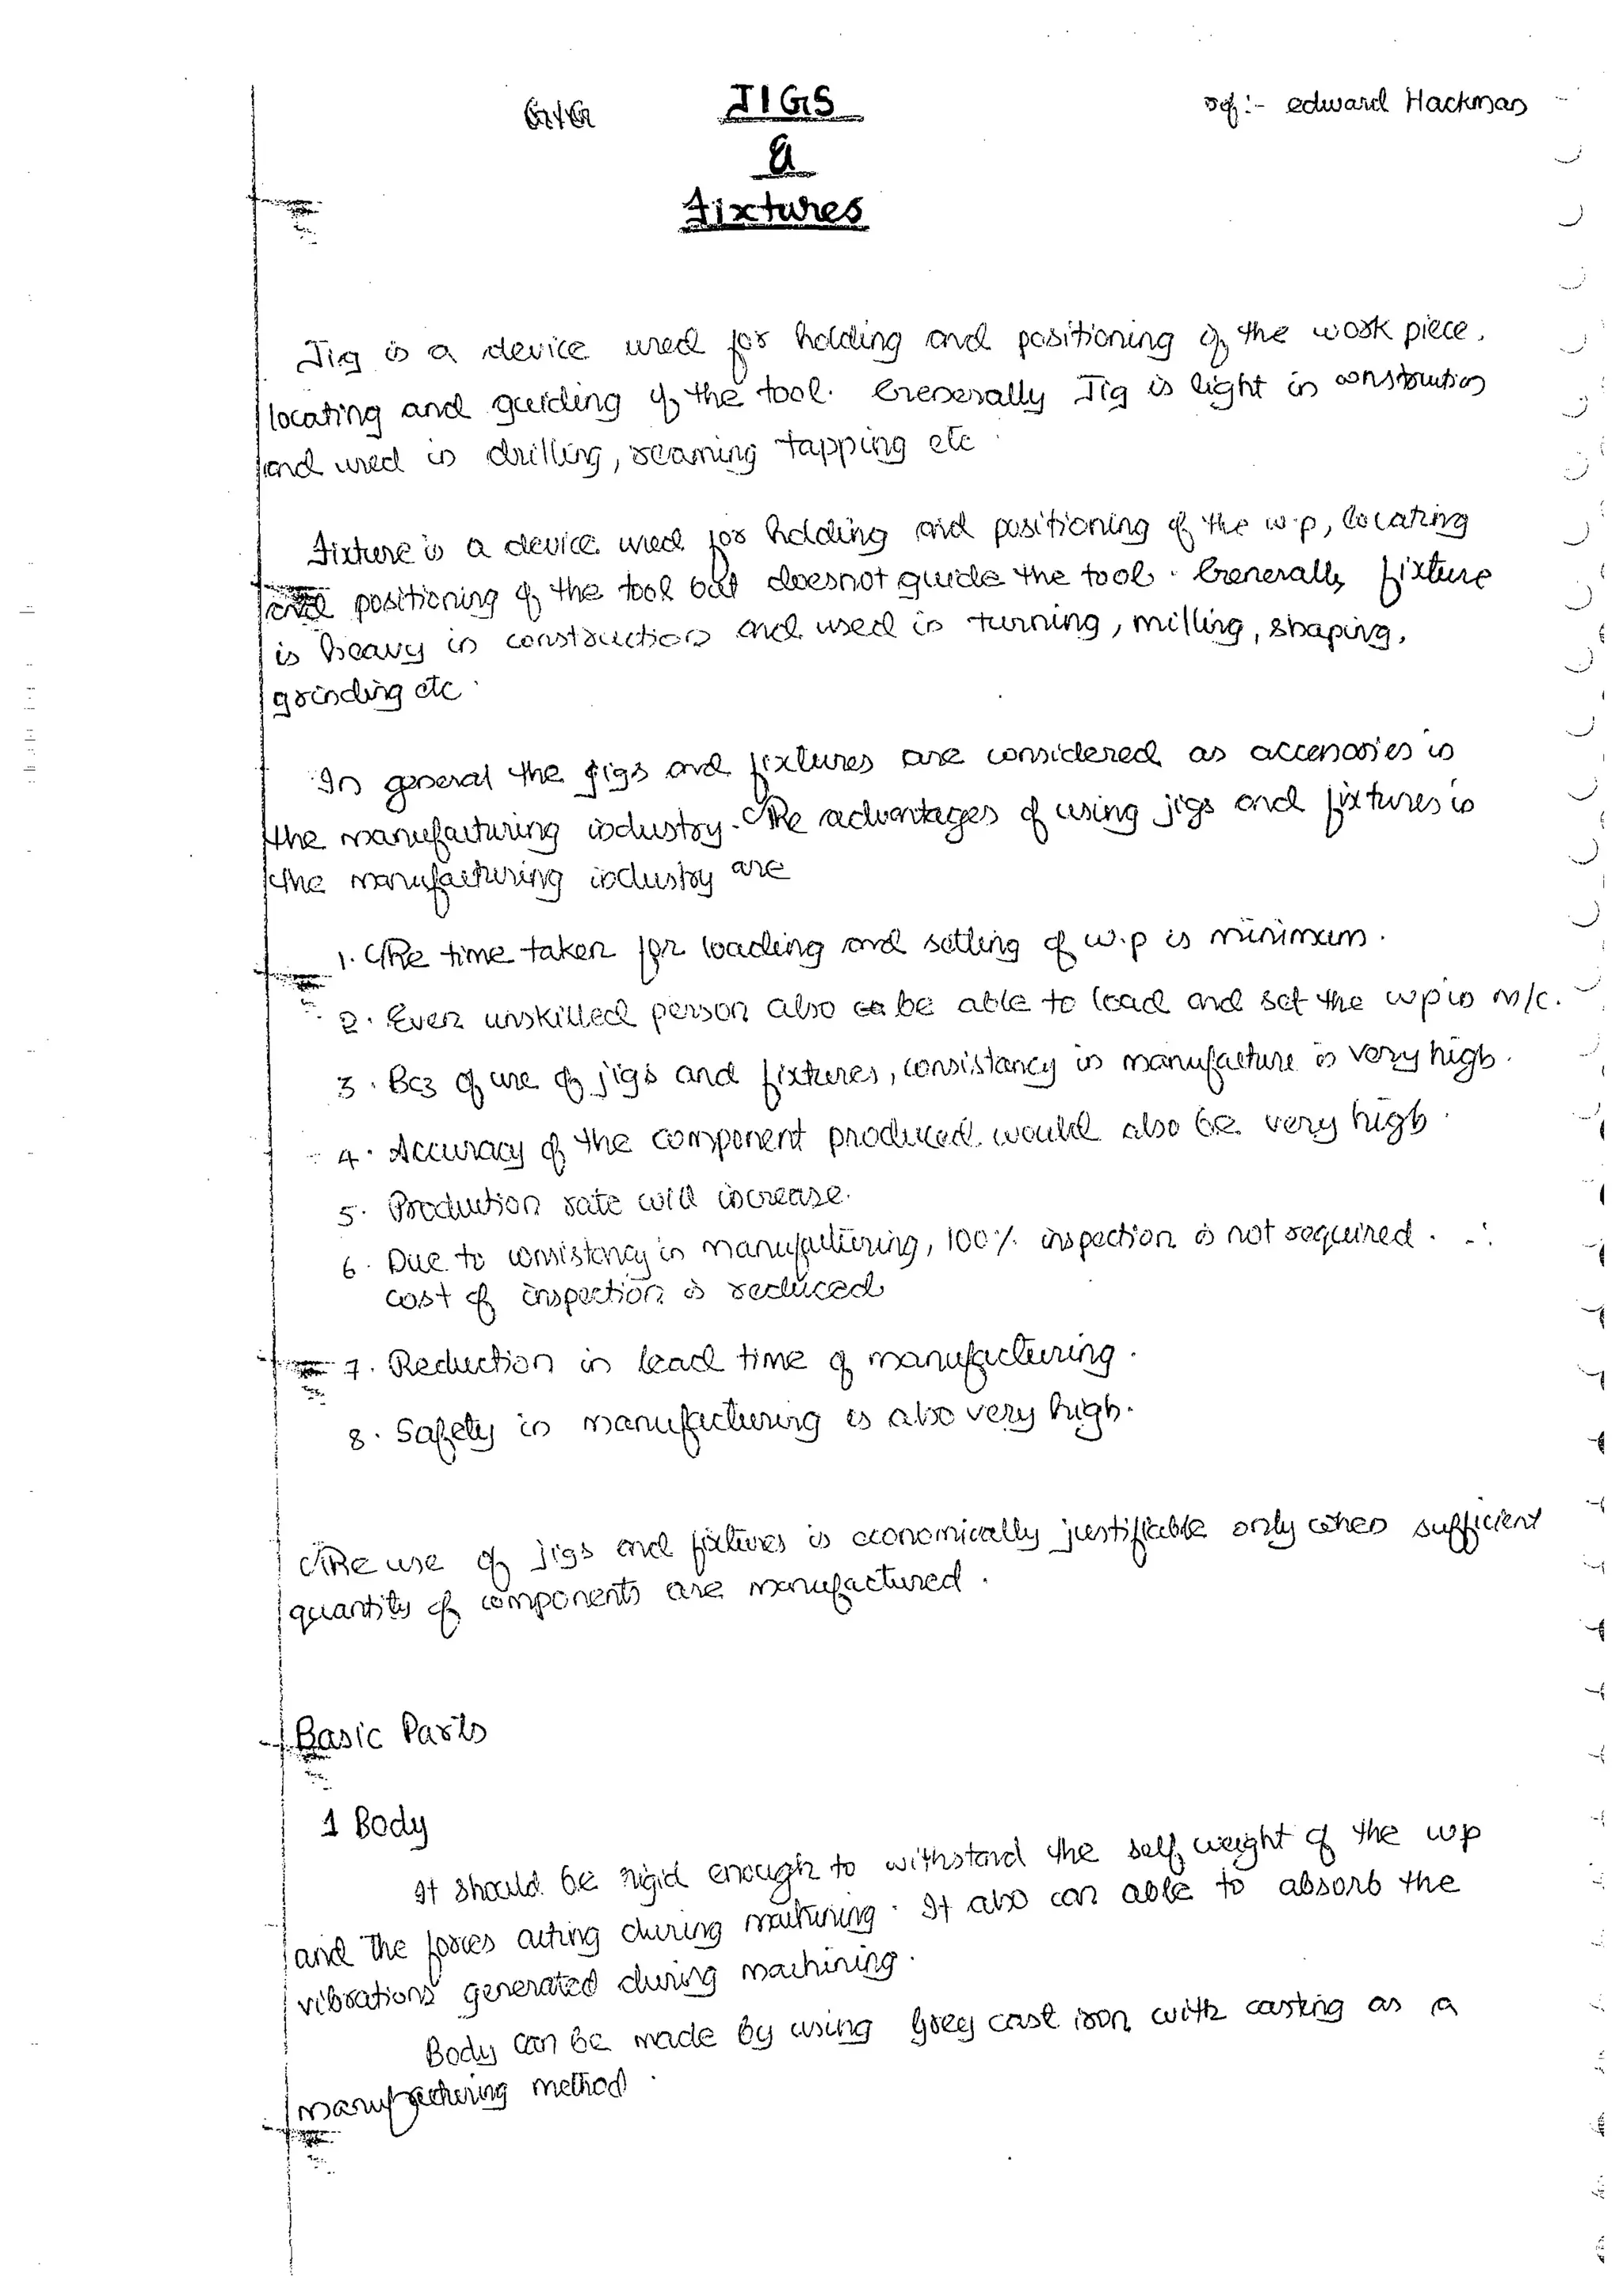 JIGS
ref :- edward Hackman
&
Fixtures
Jig is a device used for holding and positioning of the work piece,
locating and guiding of the tool. Generally Jig is light in construction
and used in drilling, reaming tapping etc.
Fixture is a device used for holding and positioning of the w.p, locating
and positioning of the tool but doesnot guide the tool. Generally fixture
is heavy in construction and used in turning, milling, shaping,
grinding etc.
In general the jigs and fixtures are considered as accessories in
the manufacturing industry. The advantages of using jigs and fixtures in
the manufacturing industry are
1. The time taken for loading and setting of w.p is minimum.
2. Even unskilled person also be able to load and set the wp in m/c.
3. Bcz of use of jigs and fixtures, consistancy in manufacture is very high.
4. Accuracy of the component produced would also be very high.
5. Production rate will increase.
6. Due to consistency in manufacturing, 100% inspection is not required. ∴
cost of inspection is reduced
7. Reduction in lead time of manufacturing.
8. Safety in manufacturing is also very high.
The use of jigs and fixtures is economically justifiable only when sufficient
quantity of components are manufactured.
Basic Parts
1 Body
It should be rigid enough to withstand the self weight of the wp
and the forces acting during machining. It also can able to absorb the
vibrations generated during machining.
Body can be made by using Grey cast iron with casting as a
manufacturing method.